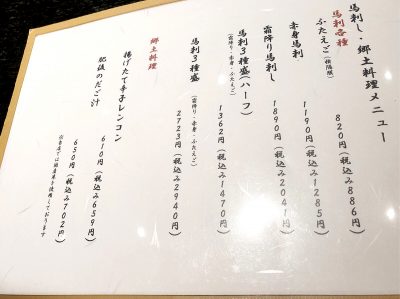 馬刺し・郷土料理メニュー
馬刺各種
ふたえご(横隔膜)
820円(税込み886円)
赤身馬刺
1190円(税込み1285円)
霜降り馬刺し
1890円(税込み2041円)
馬刺3種盛(ハーフ)
(霜降り・赤身・ふたえご)
1362円(税込み1470円)
馬刺3種盛
(霜降り・赤身・ふたえご)
2723円(税込み2940円)
郷土料理
揚げたて辛子レンコン
610円(税込み659円)
肥後のだご汁
650円(税込み702円)
※当店では国産米を使用しております